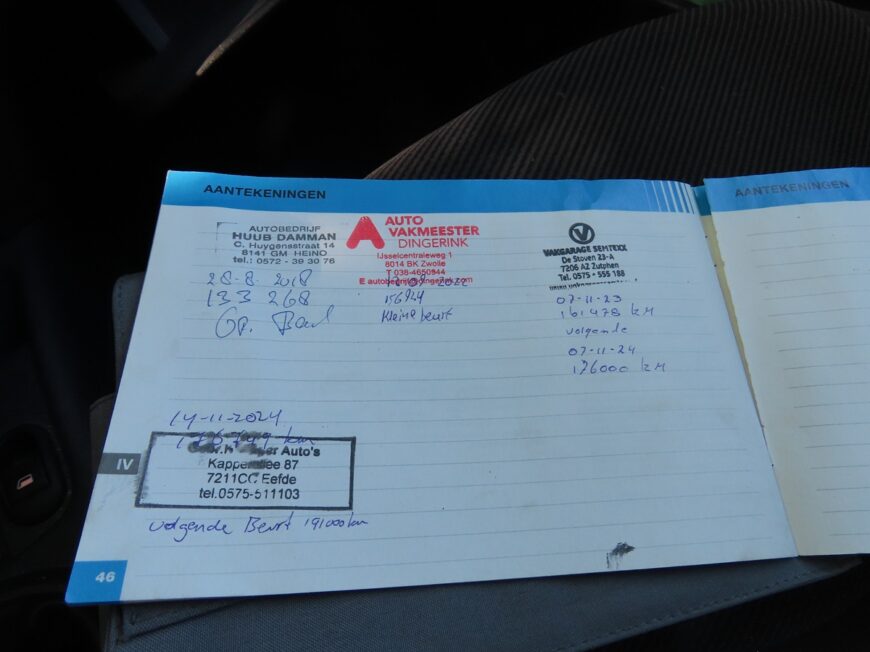 AANTEKENINGEN
AUTOBEDRIJF
HUUB DAMMAN
C. Huygensstraat 14
8141 GM HEINO
tel.: 0572 - 39 30 76
28-8-2018
133 268
AUTO
VAKMEESTER
DINGERINK
IJsselcentraleweg 1
8014 BK Zwolle
T 038-4650944
E autobedrijf@dingerink.com
2022
156924
Kleine beurt
VAKGARAGE SEMTEXX
De Stoven 23-A
7206 AZ Zutphen
Tel. 0575 - 555 188
07-11-23
161478 KM
volgende
07-11-24
176000 KM
14-11-2024
km
Auto's
87
7211CC Eefde
tel.0575-511103
volgende Beurt 191000 km
IV
46
AANTEKENINGEN